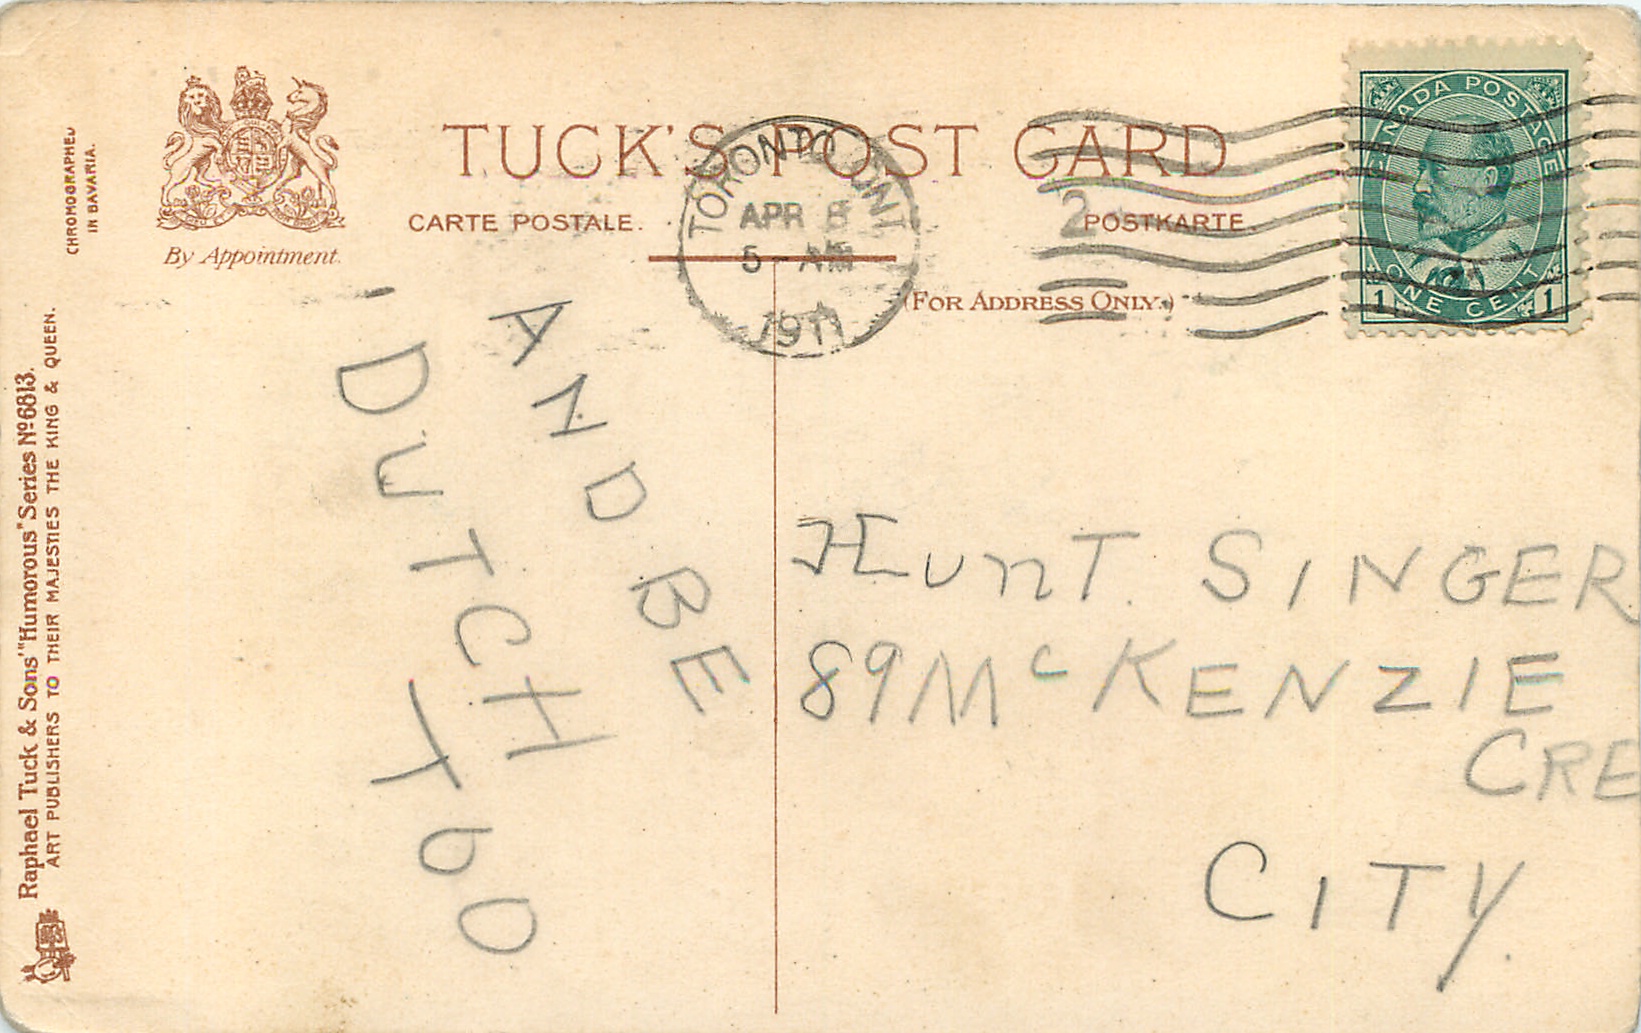 CHROMOGRAPHED
IN BAVARIA.
By Appointment.
TUCK'S POST CARD
CARTE POSTALE.
POSTKARTE.
(FOR ADDRESS ONLY.)
TORONTO ONT
APR 8
5 - AM
1911
2
CANADA POSTAGE
ONE CENT
1 1
Raphael Tuck & Sons' "Humorous" Series No 6813.
ART PUBLISHERS TO THEIR MAJESTIES THE KING & QUEEN.
AND BE
DUTCH TOO
HUNT. SINGER
89 McKENZIE
CRE
CITY.